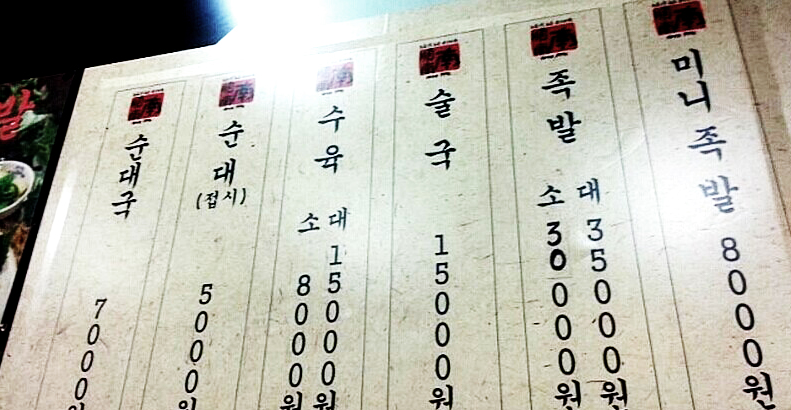 발
순대국
7000원
순대
(접시)
5000원
수육
소 8000원
대 15000원
술국
15000원
족발
소 30000원
대 35000원
미니족발
8000원